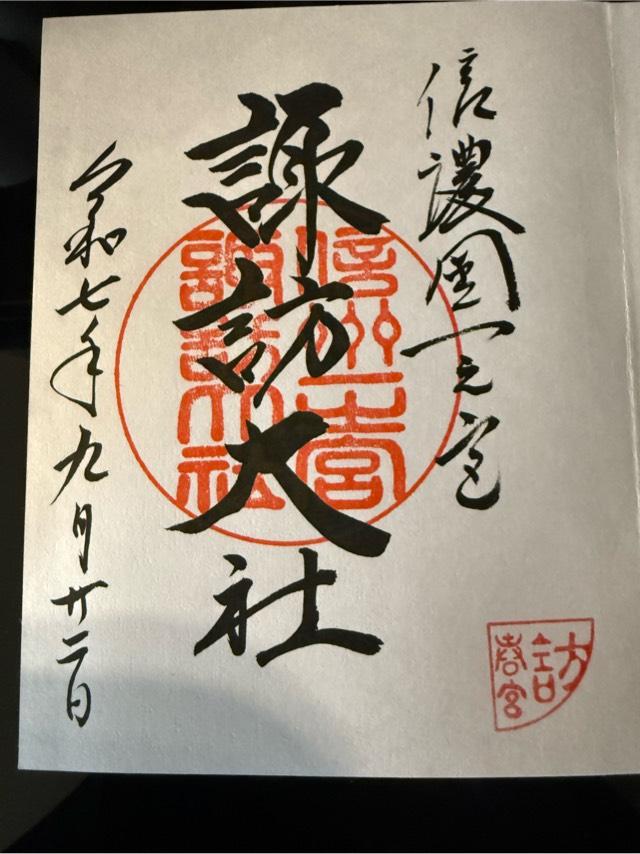 信濃國一之宮
諏訪大社
信州一宮
諏訪大社
令和七年九月廿二日
訪
春宮